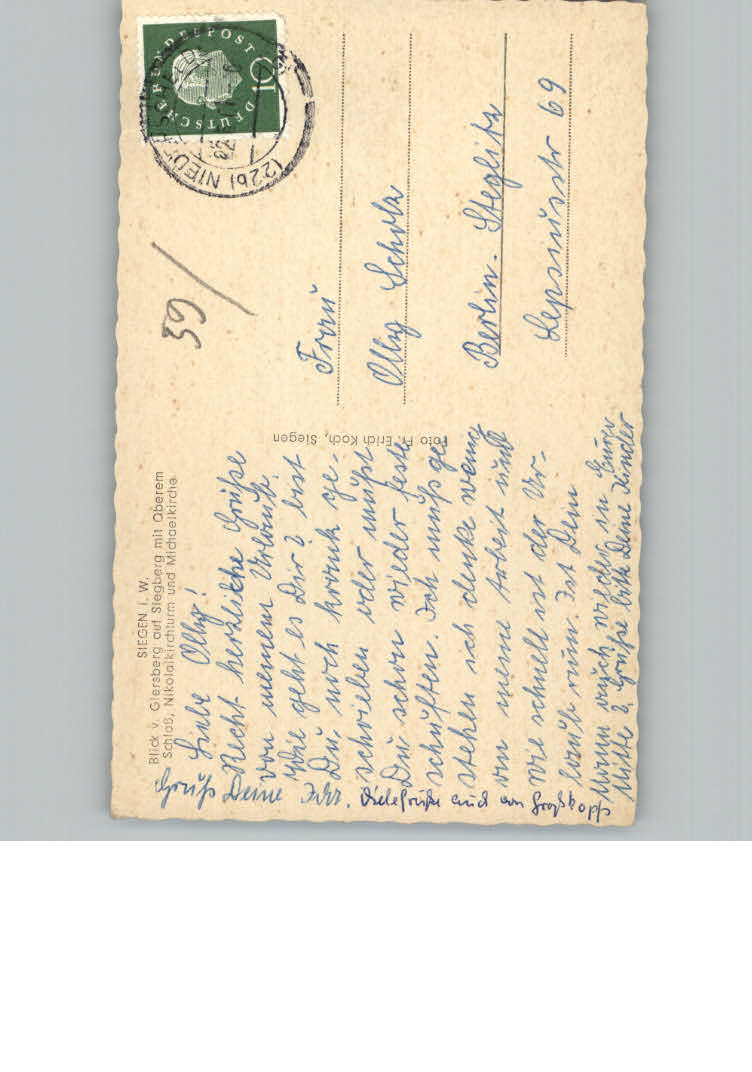 SIEGEN i. W.
Blick v. Giersberg auf Siegberg mit Oberem
Schloß, Nikolaikirchturm und Michaelkirche
Liebe Olly!
Recht herzliche Grüße
von meinem Urlaub.
Wie geht es Dir? bist
Du, noch krank ge-
schrieben oder mußt
Du schon wieder feste
schuften. Ich muß ge
stehen ich denke wenig
an meine Arbeit und
wie schnell ist der Ur-
laub rum. Ist Dein
Mann auch wieder in Eurer
Mitte? Grüße bitte Deine Kinder
Gruß Deine
Viele Grüße auch von Großkopfs
Foto Pr. Erich Koch, Siegen
59/
DEUTSCHE BUNDESPOST
10
(22b) NIED
Frau
Olly Scholz
Berlin-Steglitz
Lepsiusstr 69